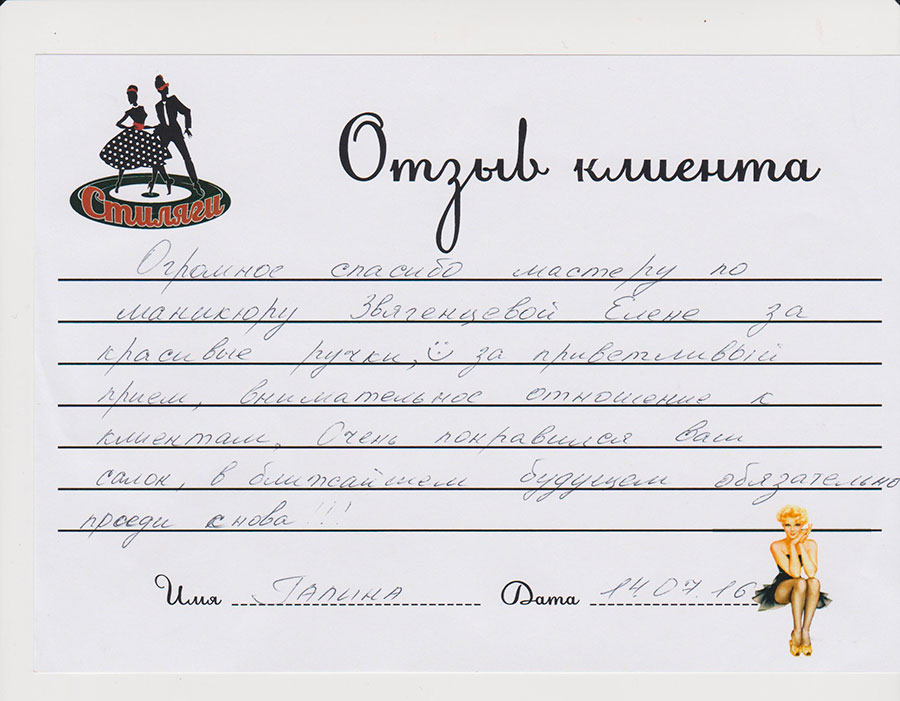 Стиляги
Отзыв клиента
Огромное спасибо мастеру по
маникюру Звягенцевой Елене за
красивые ручки, за приветливый
прием, внимательное отношение к
клиентам. Очень понравился Ваш
салон, в ближайшем будущем обязательно
снова!!!
Имя Галина Дата 14.07.16